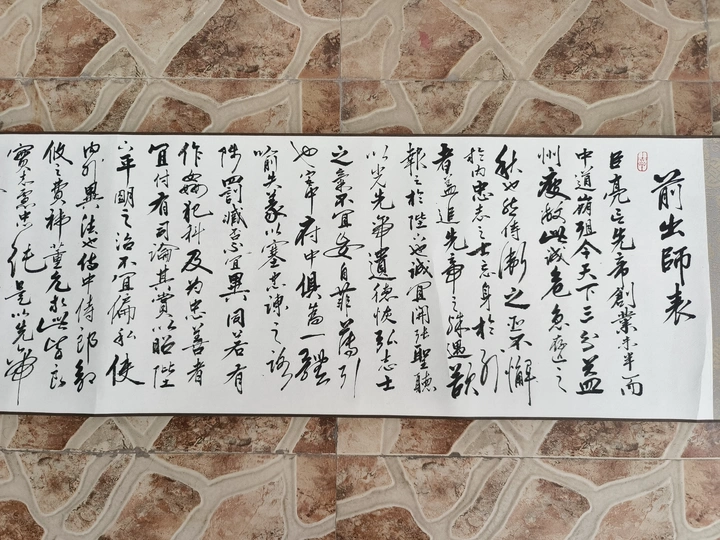 前出師表
臣亮言先帝創業未半而
中道崩殂今天下三分益
州疲敝此誠危急存亡之
秋也然侍衛之臣不懈
於內忠志之士忘身於外
者蓋追先帝之殊遇欲
報之於陛下也誠宜開張聖聽
以光先帝遺德恢弘志士
之氣不宜妄自菲薄引
也宮中府中俱為一體
喻失義以塞忠諫之路
陟罰臧否宜異同若有
作姦犯科及為忠善者
宜付有司論其賞以昭陛
下平明之治不宜偏私使
內外異法也侍中侍郎郭
攸之費禕董允等此皆良
實志慮忠純是以先帝